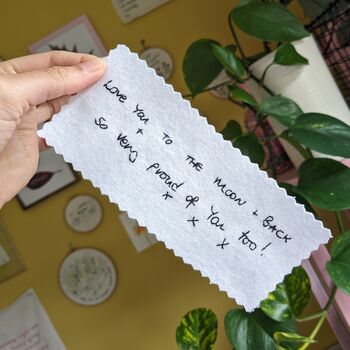 Love You TO THE MOON + BACK
+
So very proud of You too!
x x x